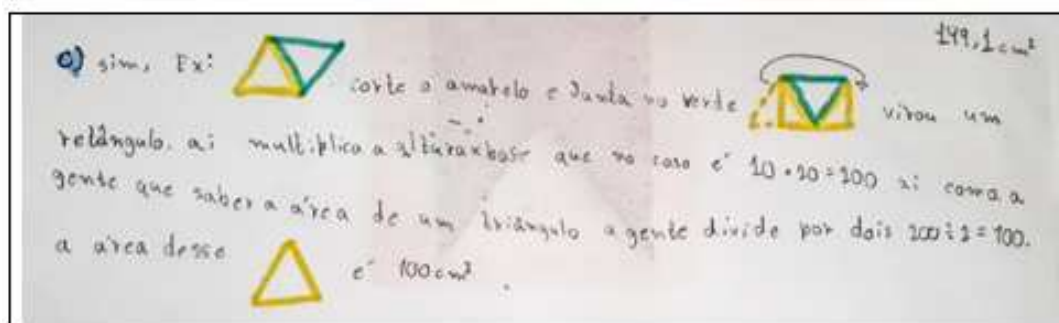 149,1 cm²
a) sim, Ex: corte o amarelo e Junta no verde virou um
retângulo. ai multiplica a altura x base que no caso e' 10 • 20 = 200 ai como a
gente que saber a área de um triângulo a gente divide por dois 200 ÷ 2 = 100.
a área desse e' 100 cm²